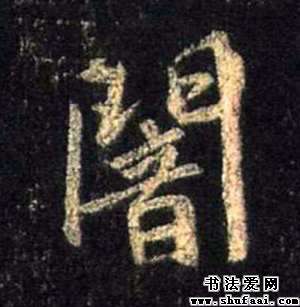 闇
书法爱网
www.shufaai.com